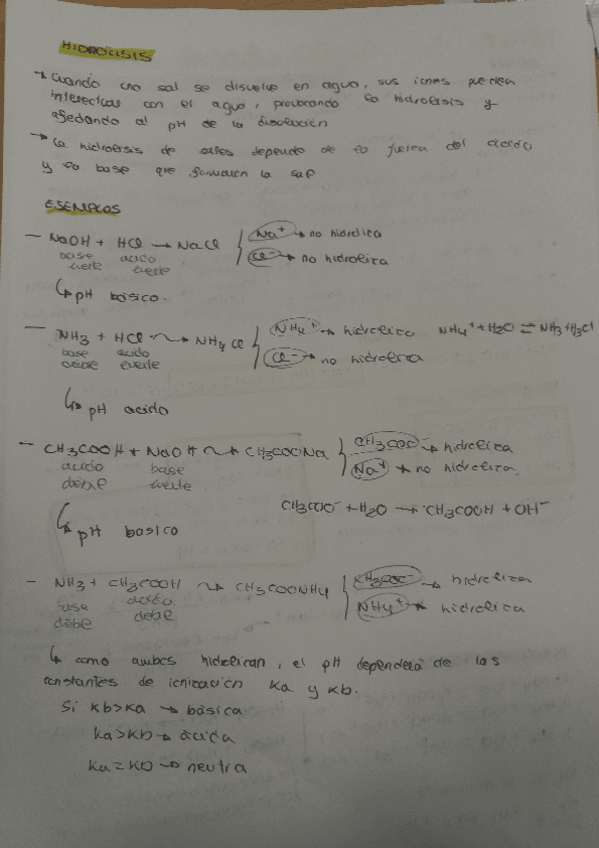 HIDRÓLISIS
→ Cuando una sal se disuelve en agua, sus iones pueden
interactuar con el agua, provocando la hidrólisis y
afectando al pH de la disolución
→ La hidrólisis de sales depende de la fuerza del ácido
y la base que forman la sal
EJEMPLOS
— NaOH + HCl → NaCl { Na⁺ → no hidroliza
base fuerte ácido fuerte Cl⁻ → no hidroliza
↳ pH básico.
— NH3 + HCl → NH4Cl { NH4⁺ → hidroliza NH4⁺ + H2O ⇌ NH3 + H3O⁺
base débil ácido fuerte Cl⁻ → no hidroliza
↳ pH acido
— CH3COOH + NaOH → CH3COONa { CH3COO⁻ → hidroliza
ácido débil base fuerte Na⁺ → no hidroliza
CH3COO⁻ + H2O → CH3COOH + OH⁻
↳ pH basico
- NH3 + CH3COOH → CH3COONH4 { CH3COO⁻ → hidroliza
base débil ácido débil NH4⁺ → hidroliza
↳ como ambos hidrolizan, el pH dependerá de las
constantes de ionización Ka y Kb.
Si Kb>Ka → básica
Ka>Kb → ácida
Ka=Kb → neutra